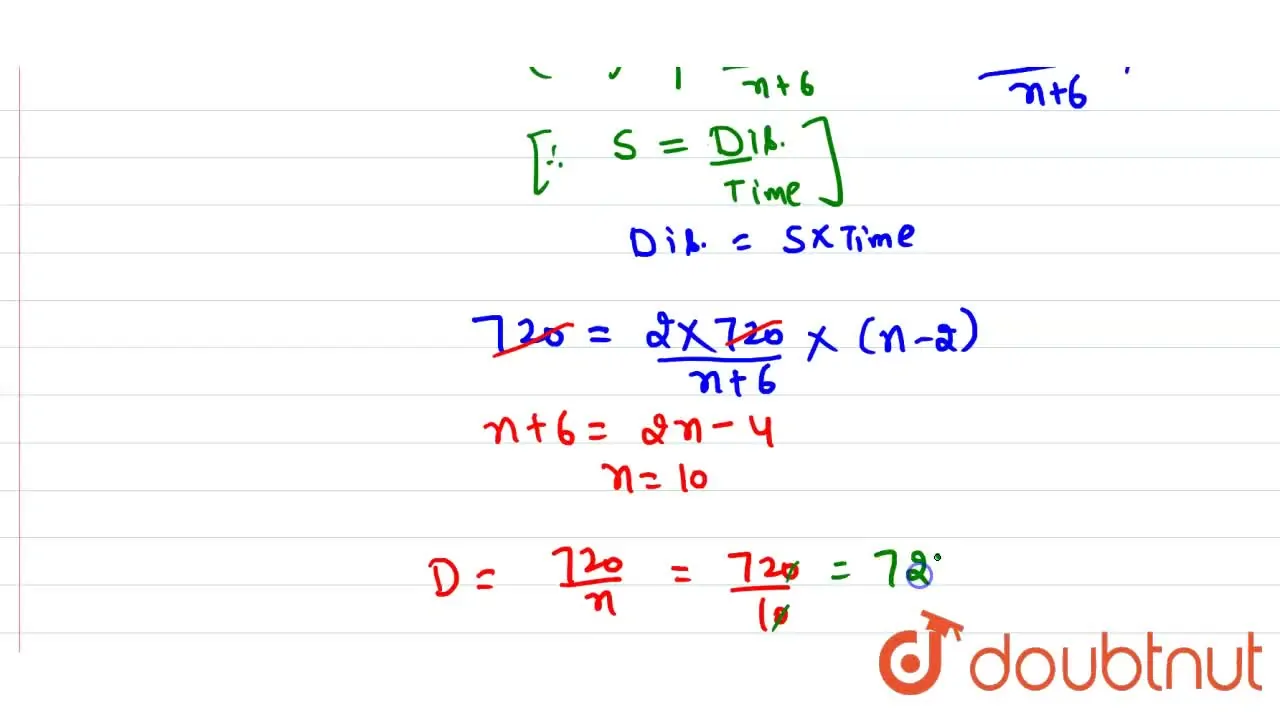 n+6 n+6
[∵ S = Dis./Time]
Dis. = S×Time
720 = 2×720/n+6 × (n-2)
n+6 = 2n-4
n=10
D = 720/n = 720/10 = 72
doubtnut